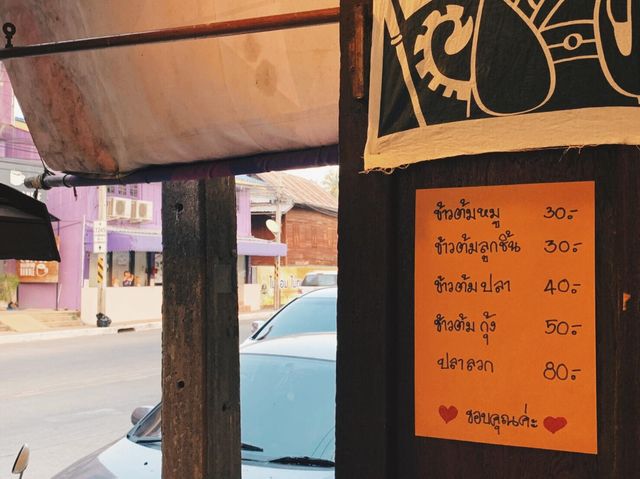 ข้าวต้มหมู 30.-
ข้าวต้มลูกชิ้น 30.-
ข้าวต้ม ปลา 40.-
ข้าวต้ม กุ้ง 50.-
ปลาลวก 80.-
ขอบคุณค่ะ